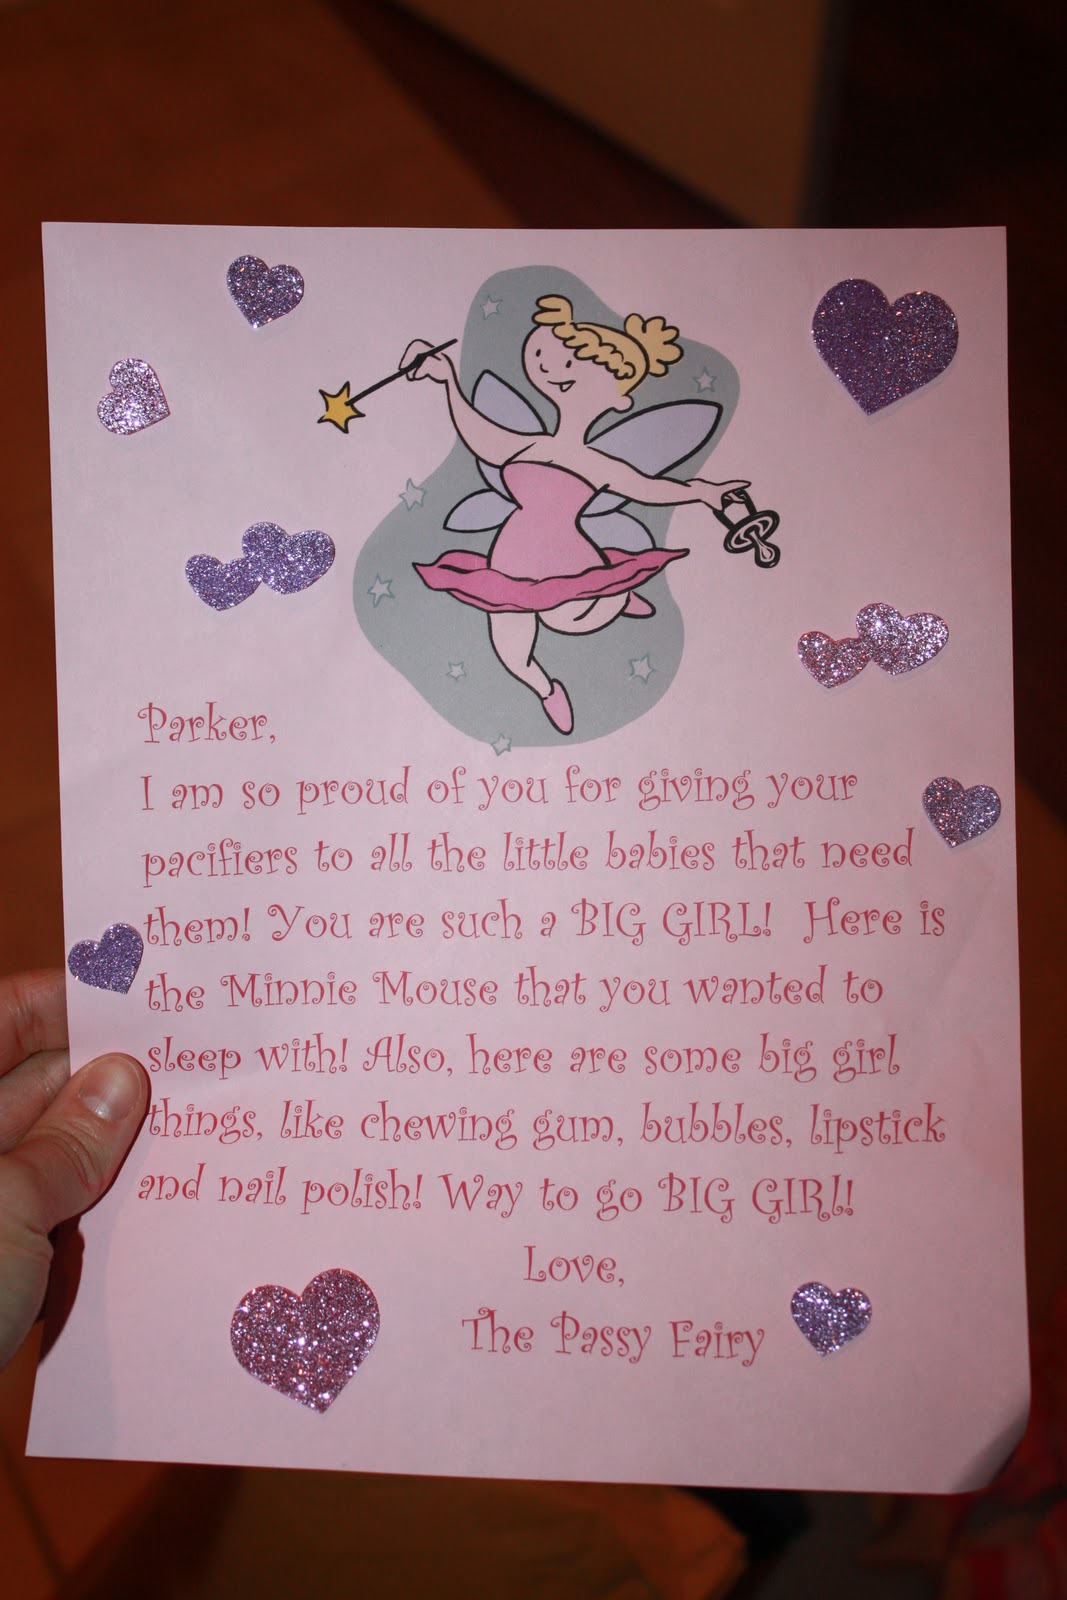 Parker,
I am so proud of you for giving your
pacifiers to all the little babies that need
them! You are such a BIG GIRL! Here is
the Minnie Mouse that you wanted to
sleep with! Also, here are some big girl
things, like chewing gum, bubbles, lipstick
and nail polish! Way to go BIG GIRl!
Love,
The Passy Fairy